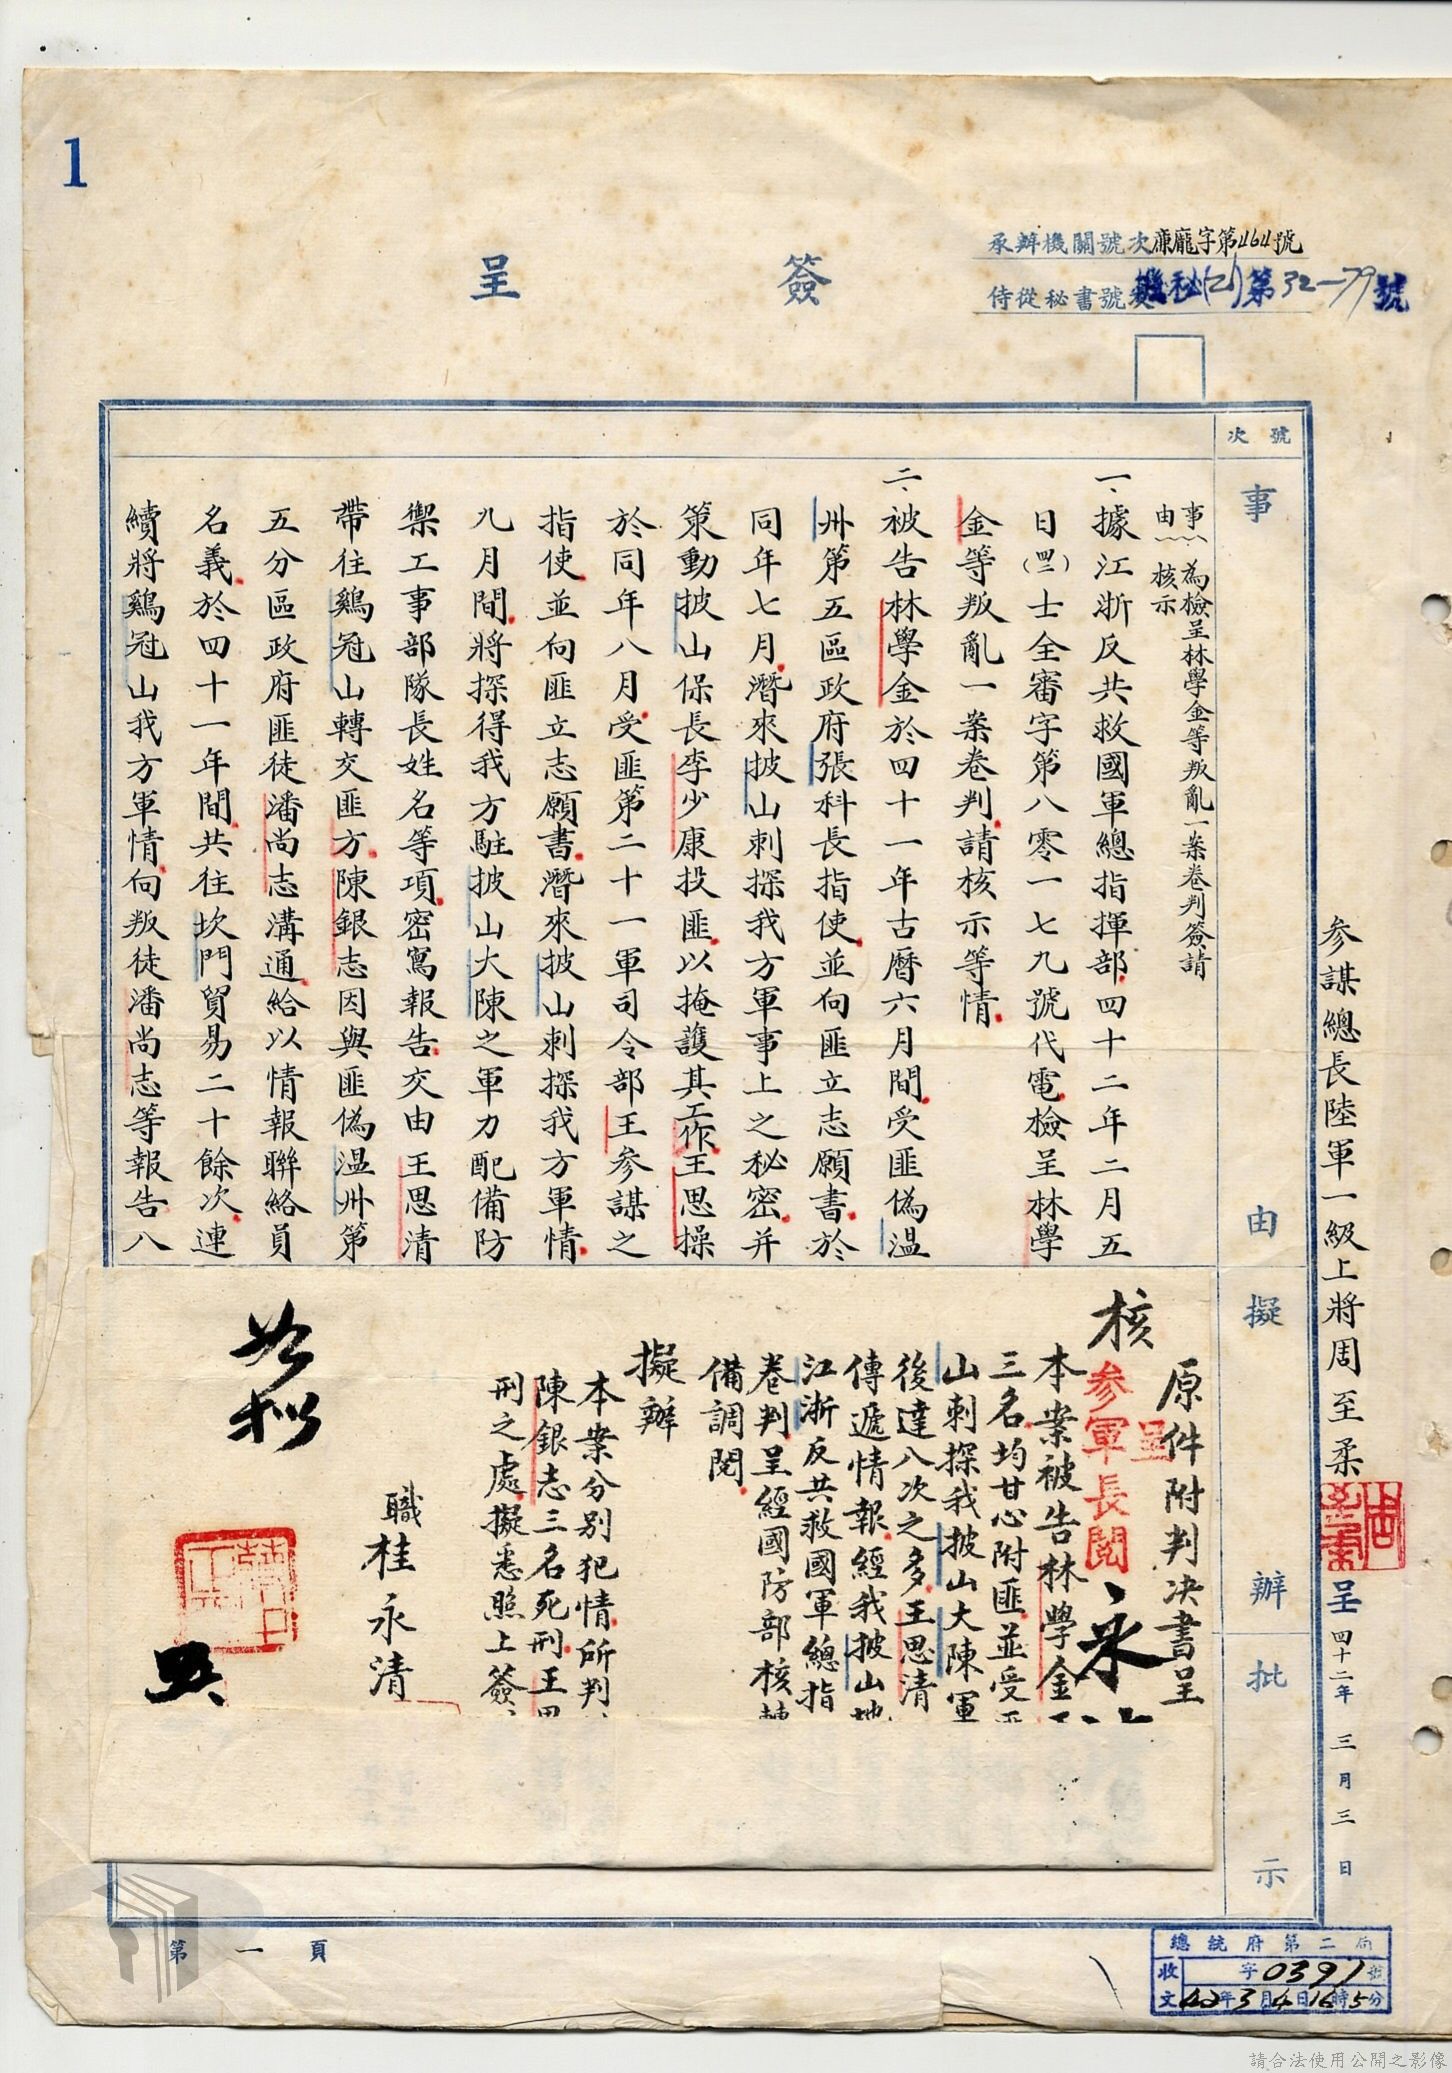 1
簽呈
承辦機關號次康龐字第464號
侍從秘書號次機秘(乙)第32-79號
號次
事由擬辦批示
參謀總長陸軍一級上將周至柔
呈四十二年三月三日
事由:為檢呈林學金等叛亂一案卷判簽請
核示
一、據江浙反共救國軍總指揮部四十二年二月五
日(四二)士全審字第八零一七九號代電檢呈林學
金等叛亂一案卷判請核示等情
二、被告林學金於四十一年古曆六月間受匪偽温
州第五區政府張科長指使並向匪立志願書於
同年七月潛來披山刺探我方軍事上之秘密并
策動披山保長李少康投匪以掩護其工作王思操
於同年八月受匪第二十一軍司令部王參謀之
指使並向匪立志願書潛來披山刺探我方軍情
九月間將探得我方駐披山大陳之軍力配備防
禦工事部隊長姓名等項密寫報告交由王思清
帶往鷄冠山轉交匪方陳銀志因與匪偽温州第
五分區政府匪徒潘尚志溝通給以情報聯絡員
名義於四十一年間共往坎門貿易二十餘次連
續將鷄冠山我方軍情向叛徒潘尚志等報告八
原件附判決書呈
核
呈參軍長閱
永
本案被告林學金
三名均甘心附匪並受
山刺探我披山大陳軍
後達八次之多王思清
傳遞情報經我披山地
江浙反共救國軍總指
卷判呈經國防部核轉
備調閱
擬辦
本案分別犯情所判
陳銀志三名死刑王思
刑之處擬悉照上簽
職桂永清
如擬
第一頁
總統府第二局
收文字0391號
42年3月4日16時5分
請合法使用公開之影像